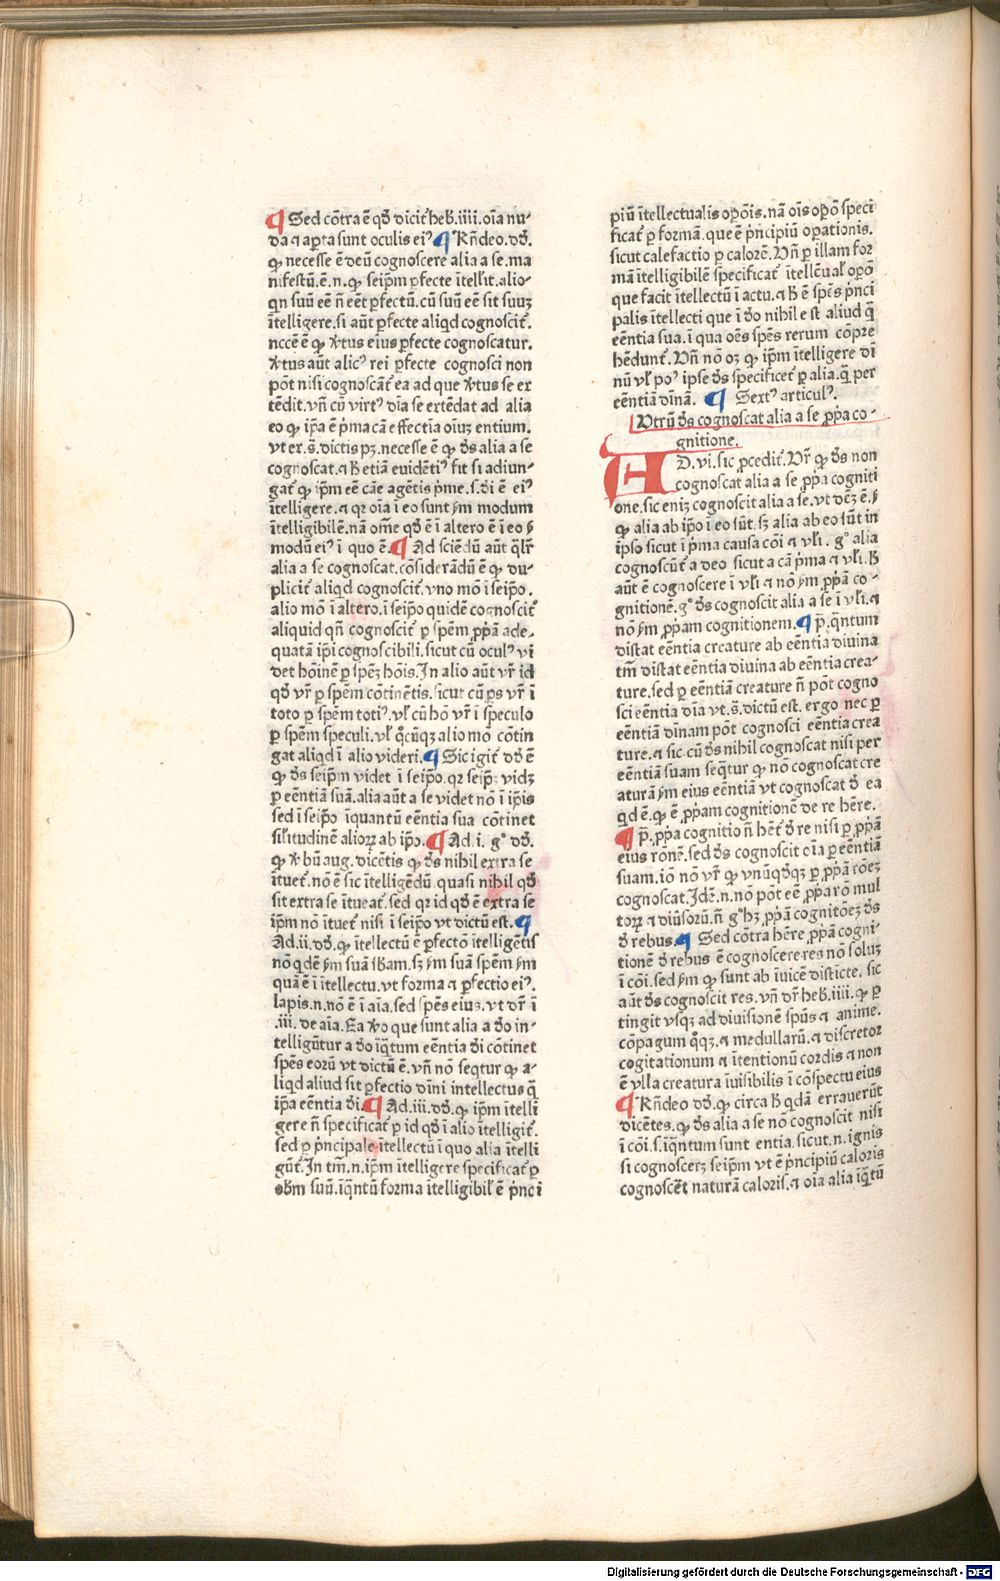 ¶ Sed cōtra ē qď dicit᷑ heb. iiii. oīa nu⸗
da ⁊ aperta sunt oculis eiꝰ ¶ Rñdeo. dď.
ꝙ necesse ē deū cognoscere alia a se. ma
nifestū. ē. n. ꝙ seip̄m ꝑfecte ītellit. alio⸗
qn suū eē ñ eēt ꝑfectū. cū suū eē sit suuꝫ
ītelligere. si aūt ꝑfecte aliqd cognoscit᷑.
nccē ē ꝙ v̾tus eius ꝑfecte cognoscatur.
v̾tus aūt alicꝰ rei ꝑfecte cognosci non
pōt nisi cognoscāt᷑ ea ad que v̾tus se ex
tēdit. vñ cū virtꝰ dīa se extēdat ad alia
eo ꝙ ip̄a ē p̄ma cā effectia oiuꝫ entium.
vt ex. s̄. dictis pꝫ. necesse ē ꝙ ds̄ alia a se
cognoscat. ⁊ ƕ etiā euidētiꝰ fit si adiun⸗
gat᷑ ꝙ ip̄m eē cāe agētis p̄me. s. di ē eiꝰ
ītelligere. ⁊ qꝛ oīa ī eo sunt ẜm modum
ītelligibilē. nā om̄e qď ē ī altero ē ī eo ẜ
modū eiꝰ ī quo ē. ¶ Ad sciēdū aūt qlr̄
alia a se cognoscat. cōsiderādū ē ꝙ du⸗
plicit᷑ aliqd cognoscit᷑. vno mō ī seip̄o.
alio mō ī altero. ī seip̄o quidē cognoscit᷑
aliquid qñ cognoscit᷑ ꝑ spēm ꝓpā ade⸗
quatā ip̄i cognoscibili. sicut cū oculꝰ vi
det hoīnē ꝑ spēꝫ hōis. In alio aūt vr̄ id
qď vr̄ ꝑ spēm cōtinētis. sicut cū ꝑs vr̄ ī
toto ꝑ spēm totiꝰ. vl̄ cū hō vr̄ ī speculo
ꝑ spēm speculi. vl̄ q̄cūqꝫ alio mō cōtin
gat aliqd ī alio videri. ¶ Sic igit᷑ dď ē
ꝙ ds̄ seip̄m videt ī seip̄o. qꝛ seip̄ꝫ vidꝫ
ꝑ eēntiā suā. alia aūt a se videt nō ī ip̄is
sed ī seip̄o īquantū eēntia sua cōtinet
sil̄itudinē alioꝝ ab ip̄o. ¶ Ad. i. gͦ dď.
ꝙ v̾bū aug. dicētis ꝙ ds̄ nihil extra se
ītuet᷑. nō ē sic ītelligēdū. quasi nihil qď
sit extra se ītueat᷑. sed qꝛ id qď ē extra se
ip̄m nō ītuet᷑ nisi ī seip̄o vt dictū est. ¶
Ad. ii. dď. ꝙ ītellectū ē ꝑfectō ītelligētis
nō qdē ẜm suā sƀam. sꝫ ẜm suā spēm ẜm
quā ē ī ītellectu. vt forma ⁊ ꝑfectio eiꝰ.
lapis. n. nō ē ī aīa. sed spēs eius. vt dr̄ ī
.iii. de aīa. Ea v̾o que sunt alia a dō in⸗
telligūtur a dō īq̄tum eēntia di cōtinet
spēs eorū vt dictū ē. vñ nō seqtur ꝙ a⸗
liqd aliud sit ꝑfectio dīni intellectus q̄
ip̄a eēntia di. ¶ Ad. iii. dď. ꝙ ip̄m ītelli
gere ñ specificat᷑ ꝑ id qď ī alio ītelligit᷑.
sed ꝑ p̄ncipale ītellectū ī quo alia ītelli
gūt᷑. In tm̄. n. ip̄m ītelligere specificat᷑ ꝑ
obm̄ suū. īq̄ntū forma ītelligibil᷑ ē p̄nci
piū ītellectualis oꝑōis. nā oīs oꝑō speci
ficat᷑ ꝑ formā. que ē p̄ncipiū oꝑationis.
sicut calefactio ꝑ calorē. Vñ ꝑ illam for
mā ītelligibilē specificat᷑ ītellēual᷑ oꝑō
que facit ītellectū ī actu. ⁊ ƕ ē spēs p̄nci
palis ītellecti que ī dō nihil est aliud q̄
eēntia sua. ī qua oēs spēs rerum cōpre
hēdunt᷑. Vñ nō oꝫ ꝙ ip̄m ītelligere di
nū vl̄ poꝰ ipse ds̄ specificet᷑ ꝑ alia. q̄ per
eēntiā dīnā. ¶ Sextꝰ articulꝰ.
Vtrū ds̄ cognoscat alia a se ꝓpa co⸗
gnitione.
AD. vi. sic ꝓcedit᷑. Vr̄ ꝙ ds̄ non
cognoscat alia a se ꝓpā cogniti
one. sic eniꝫ cognoscit alia a se. vt dcꝫ ē. ẜ
ꝙ alia ab ip̄o ī eo sūt. sꝫ alia ab eo sūt in
ip̄so sicut ī p̄ma causa cōi ⁊ vl̄i. gͦ alia
cognoscūt᷑ a deo sicut a cā p̄ma ⁊ vl̄i. ƕ
aūt ē cognoscere ī vl̄i ⁊ nō ẜm ꝓpā co⸗
gnitionē. gͦ ds̄ cognoscit alia a se ī vl̄i. ⁊
nō ẜm ꝓpam cognitionem. ¶ P̄. q̄ntum
distat eēntia creature ab eēntia diuina
tm̄ distat eēntia diuina ab eēntia crea⸗
ture. sed ꝑ eēntiā creature ñ pōt cogno
sci eēntia dīa vt. s̄. dictū est. ergo nec ꝑ
eēntiā dīnam pōt cognosci eēntia crea
ture. ⁊ sic cū ds̄ nihil cognoscat nisi per
eēntiā suam seq̄tur ꝙ nō cognoscat cre
aturā ẜm eius eēntiā vt cognoscat ď ea
qd ē. ꝙ ē ꝓpam cognitionē de re hēre.
¶ P̄. ꝓpa cognitio ñ hēt᷑ ď re nisi ꝑ ꝓpā
eius ronē. sed ds̄ cognoscit oīa ꝑ eēntiā
suam. iō nō vr̄ ꝙ vnūqďqꝫ ꝑ ꝓpā rōeꝫ
cognoscat. Idē. n. nō pōt eē ꝓpa rō mul
toꝝ ⁊ diuſorū. ñ gͦ hꝫ ꝓpā cognitōeꝫ ds̄
ď rebus. ¶ Sed cōtra hēre ꝓpā cogni⸗
tionē ď rebus ē cognoscere res nō soluꝫ
ī cōi. sed ẜm ꝙ sunt ab īuicē distīcte. sic
aūt ds̄ cognoscit res. vñ dr̄ heb. iiii. ꝙ ꝑ
tingit vsqꝫ ad diuisionē spūs ⁊ anime.
cōpagum q̄qꝫ. ⁊ medullarū. ⁊ discretor
cogitationum ⁊ ītentionū cordis ⁊ non
ē vlla creatura īuisibilis ī cōspectu eius
¶ Rñdeo dď. ꝙ circa ƕ qdā errauerūt
dicētes. ꝙ ds̄ alia a se nō cognoscit nisi
ī cōi. s. īq̄ntum sunt entia. sicut. n. ignis
si cognoscerꝫ seip̄m vt ē p̄ncipiū caloris
cognoscēt naturā caloris. ⁊ oīa alia īq̄tū
Digitalisierung gefördert durch die Deutsche Forschungsgemeinschaft - DFG